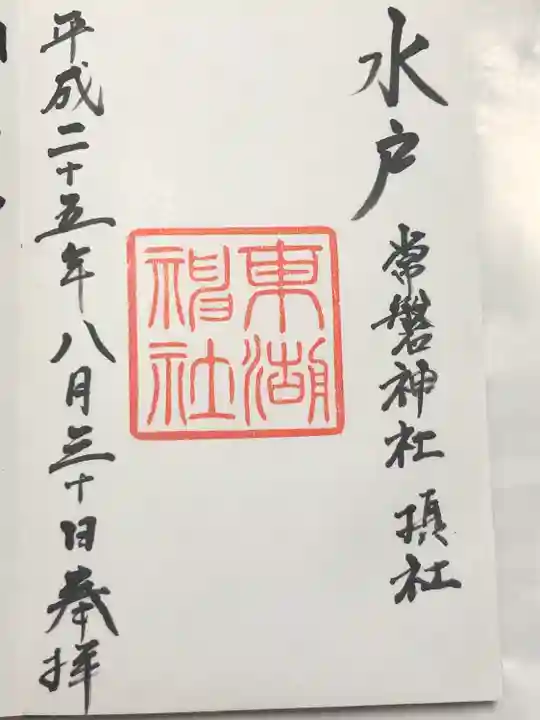 水戸 常磐神社 摂社
東湖
神社
平成二十五年八月三十日奉拝